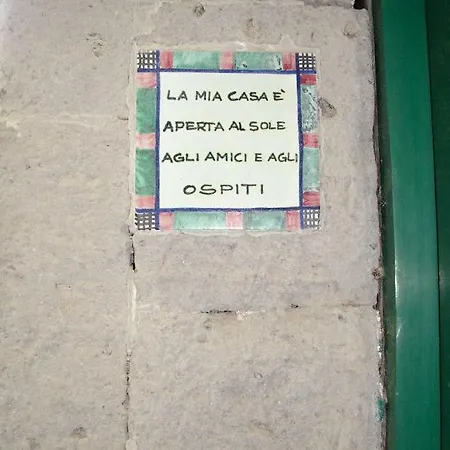 LA MIA CASA È
APERTA AL SOLE
AGLI AMICI E AGLI
OSPITI